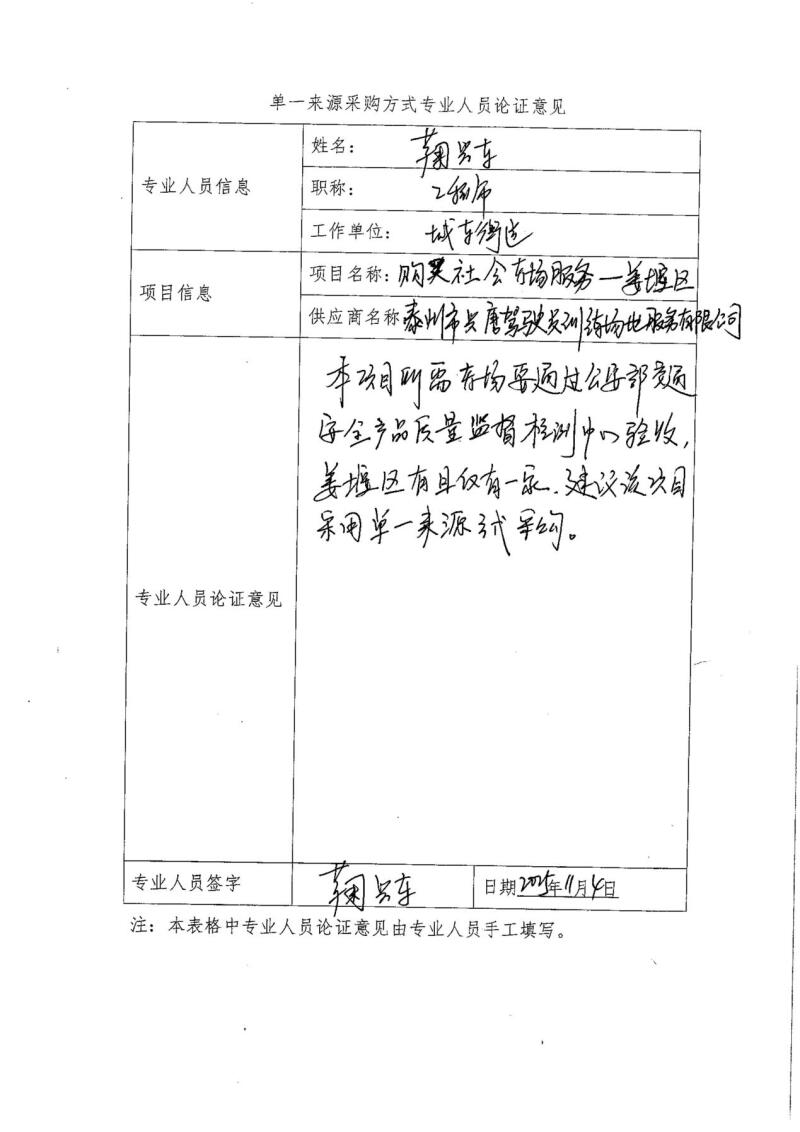 单一来源采购方式专业人员论证意见
专业人员信息
姓名: 鞠兴车
职称: 工程师
工作单位: 城东街道
项目信息
项目名称: 购买社会考场服务一姜堰区
供应商名称 泰州市兴唐驾驶员训练场地服务有限公司
专业人员论证意见
本项目所需考场要通过公安部交通
安全产品质量监督检测中心验收,
姜堰区有且仅有一家.建议该项目
采用单一来源式采购。
专业人员签字
鞠兴车
日期2025年11月4日
注: 本表格中专业人员论证意见由专业人员手工填写。